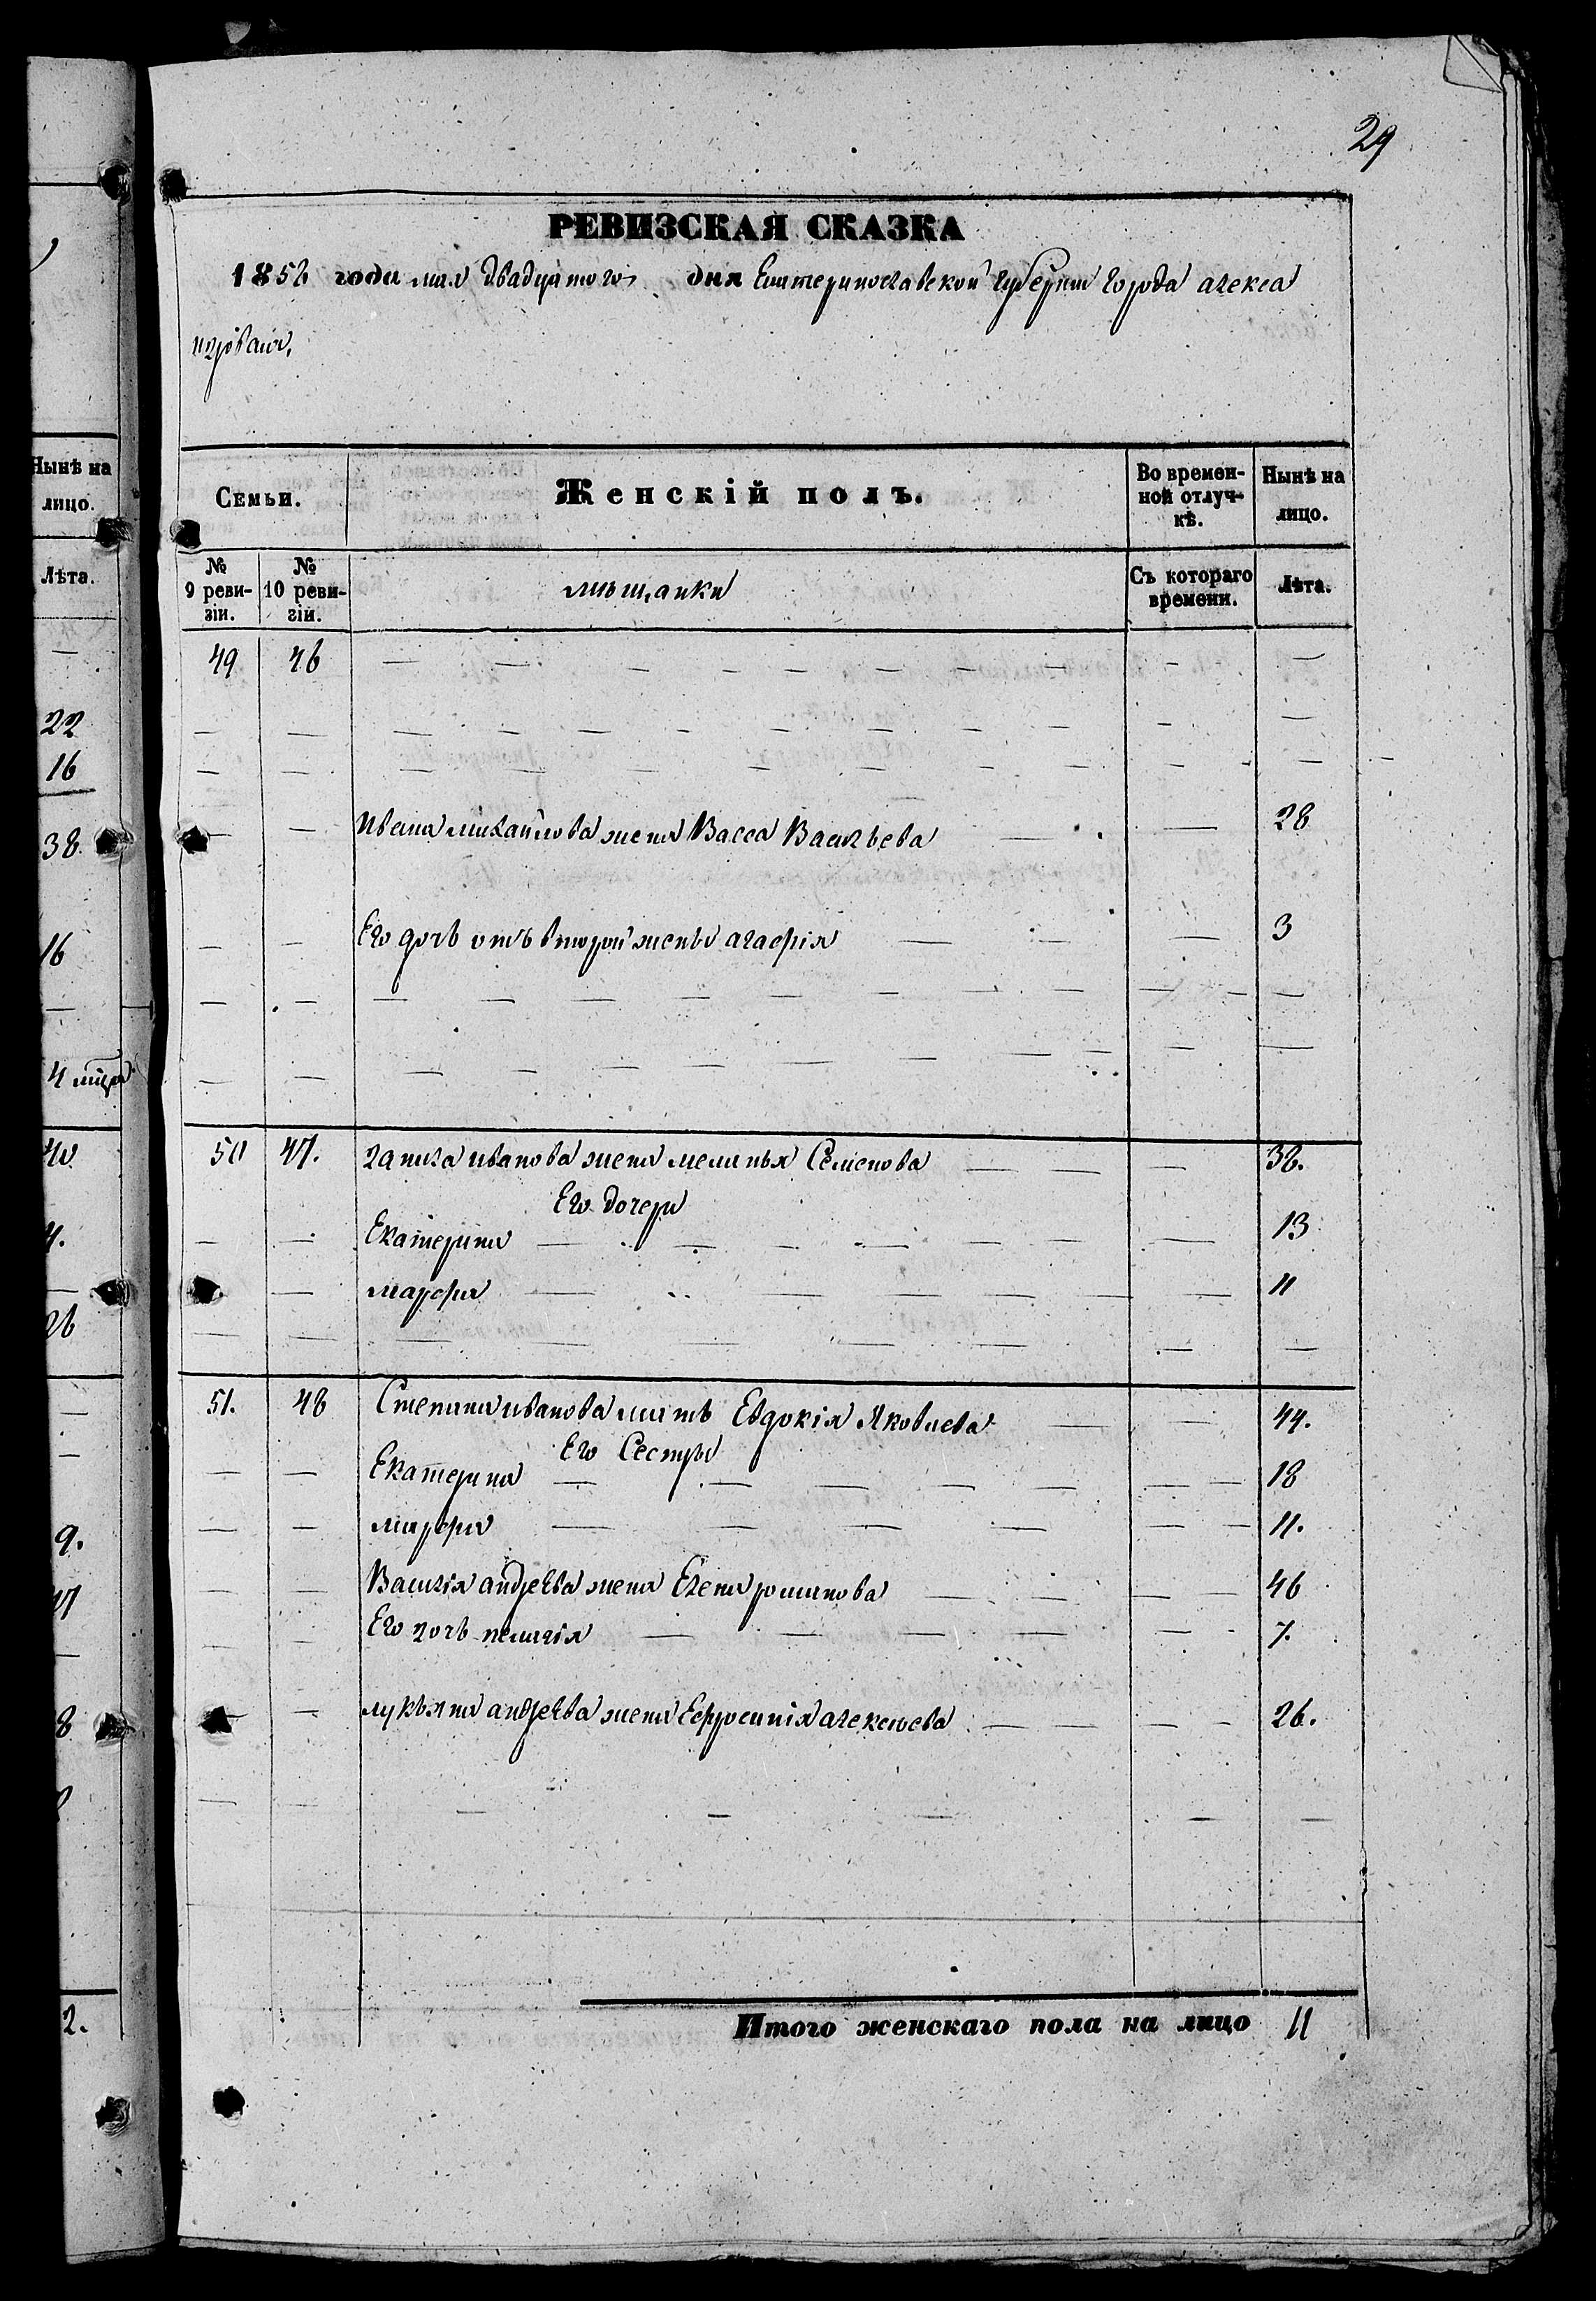 29
РЕВИЗСКАЯ СКАЗКА
1858 года мая двадцатого дня Екатеринославской губернии города алекса
ндровска,
Нынѣ на
лицо.
Лѣта.
22
16
38
16
2.
Семьи.
Женскій полъ.
Во времен-
ной отлуч-
кѣ.
Нынѣ на
лицо.
№
9 реви-
зіи.
№
10 реви-
зіи.
мѣщанки
Съ котораго
времени.
Лѣта.
49 46
Ивана михайлова жена Васса Васильева 28
Его дочь отъ второй жены агафія 3
50 47. иванова жена меланья Семенова 38.
Его дочери
Екатерина 13
марфа 11
51. 48 Степана иванова мать Евдокія Яковлева 44.
Его Сестры
Екатерина 18
марфа 11.
Василія андреева жена Елена романова 46
Его дочь пелагія 7.
лукьяна андреева жена Ефросинія алексеева 26.
Итого женскаго пола на лицо 11